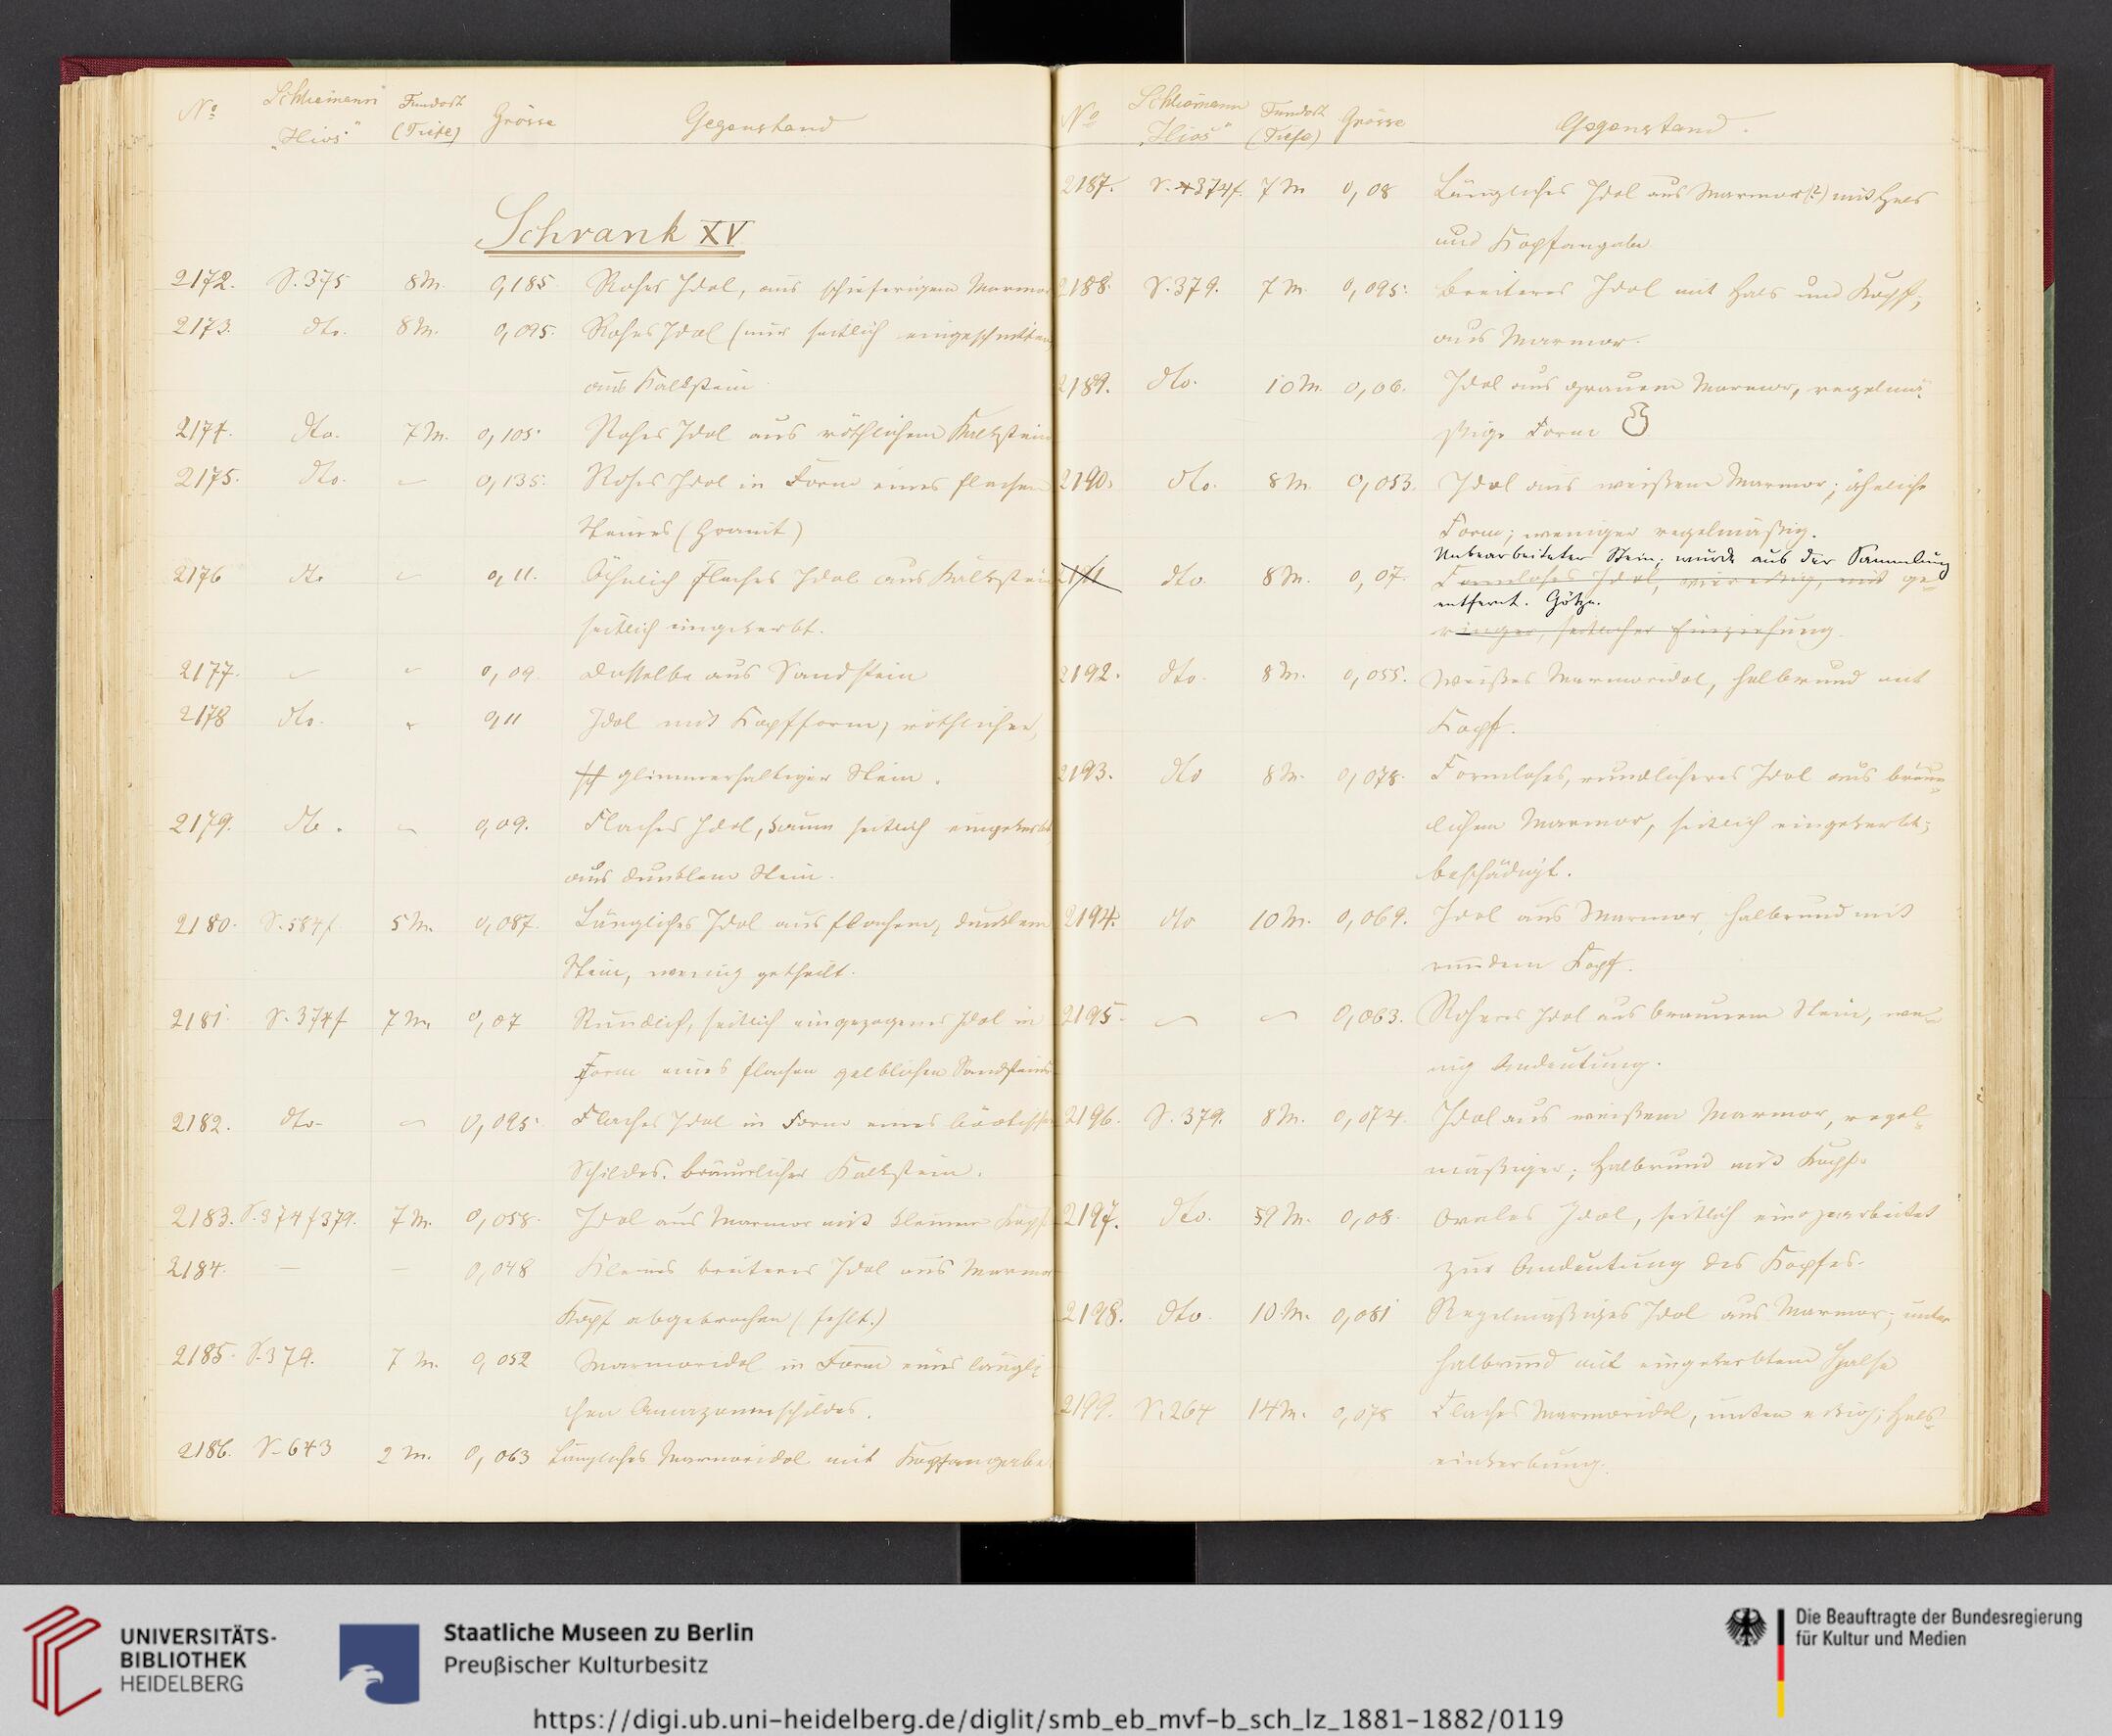 No Schliemann Fundort Grösse Gegenstand
„Ilios" (Tiefe)
Schrank XV
2172. S. 375 8 M. 0,185 Rohes Idol, aus schieferigem Marmor
2173. dto. 8 M. 0,095. Rohes Idol (nur seitlich eingeschnitten)
aus Kalkstein
2174. dto. 7 M. 0,105 Rohes Idol aus röthlichem Kalkstein
2175. dto. – 0,135. Rohes Idol in Form eines flachen
Steines (Granit)
2176 dto – 0,11. Ähnlich flaches Idol aus Kalkstein
seitlich eingekerbt.
2177. – – 0,09. dasselbe aus Sandstein
2178 dto. – 0,11 Idol mit Kopfform, röthlicher,
glimmerhaltiger Stein.
2179. dto. – 0,09. Flaches Idol, kaum seitlich eingekerbt,
aus dunklem Stein.
2180. S. 584f. 5 M. 0,087. Längliches Idol aus flachem, dunklem
Stein, wenig getheilt.
2181. S. 374f 7 M. 0,07 Rundlich, seitlich eingezogenes Idol in
Form eines flachen gelblichen Sandsteins
2182. dto – 0,095. Flaches Idol in Form eines böotischen
Schildes. bräunlicher Kalkstein.
2183. S. 374f 379. 7 M. 0,058. Idol aus Marmor mit kleinem Kopf
2184. – – 0,048 Kleines breiteres Idol aus Marmor
Kopf abgebrochen (fehlt.)
2185. S. 379. 7 M. 0,052 Marmoridol in Form eines längli-
chen Amazonenschildes.
2186. S. 643 2 M. 0,063 Längliches Marmoridol mit Kopfangabe
No Schliemann Fundort Grösse Gegenstand.
„Ilios" (Tiefe)
2187. S. 374f. 7 M 0,08 Längliches Idol aus Marmor(?) mit Hals
und Kopfangabe
2188. S. 379. 7 M. 0,095. breiteres Idol mit Hals und Kopf,
aus Marmor.
2189. dto. 10 M. 0,06. Idol aus grauem Marmor, regelmä-
ßige Form
2190. dto. 8 M 0,053. Idol aus weißem Marmor; ähnliche
Form; weniger regelmäßig.
Unbearbeiteter Stein; wurde aus der Sammlung
2191 dto. 8 M. 0,07. Formloses Idol, viereckig, mit ge-
entfernt. Götze.
ringer, seitlicher Einziehung.
2192. dto. 8 M. 0,055. Weißes Marmoridol, halbrund mit
Kopf.
2193. dto 8 M. 0,078. Formloses, rundlicheres Idol aus bräun-
lichem Marmor, seitlich eingekerbt;
beschädigt.
2194. dto 10 M. 0,069. Idol aus Marmor, halbrund mit
rundem Kopf.
2195. – – 0,063. Roheres Idol aus braunem Stein, we-
nig Andeutung.
2196. S. 379. 8 M. 0,074. Idol aus weißem Marmor, regel-
mäßiger; halbrund mit Kopf.
2197. dto. 9 M. 0,08. Ovales Idol, seitlich eingearbeitet
zur Andeutung des Kopfes.
2198. dto. 10 M. 0,081 Regelmäßiges Idol aus Marmor; unten
halbrund mit eingekerbtem Halse
2199. S. 264 14 M. 0,078 Flaches Marmoridol, unten eckig; Hals-
einkerbung.
UNIVERSITÄTS-
BIBLIOTHEK
HEIDELBERG
Staatliche Museen zu Berlin
Preußischer Kulturbesitz
Die Beauftragte der Bundesregierung
für Kultur und Medien
https://digi.ub.uni-heidelberg.de/diglit/smb_eb_mvf-b_sch_lz_1881-1882/0119